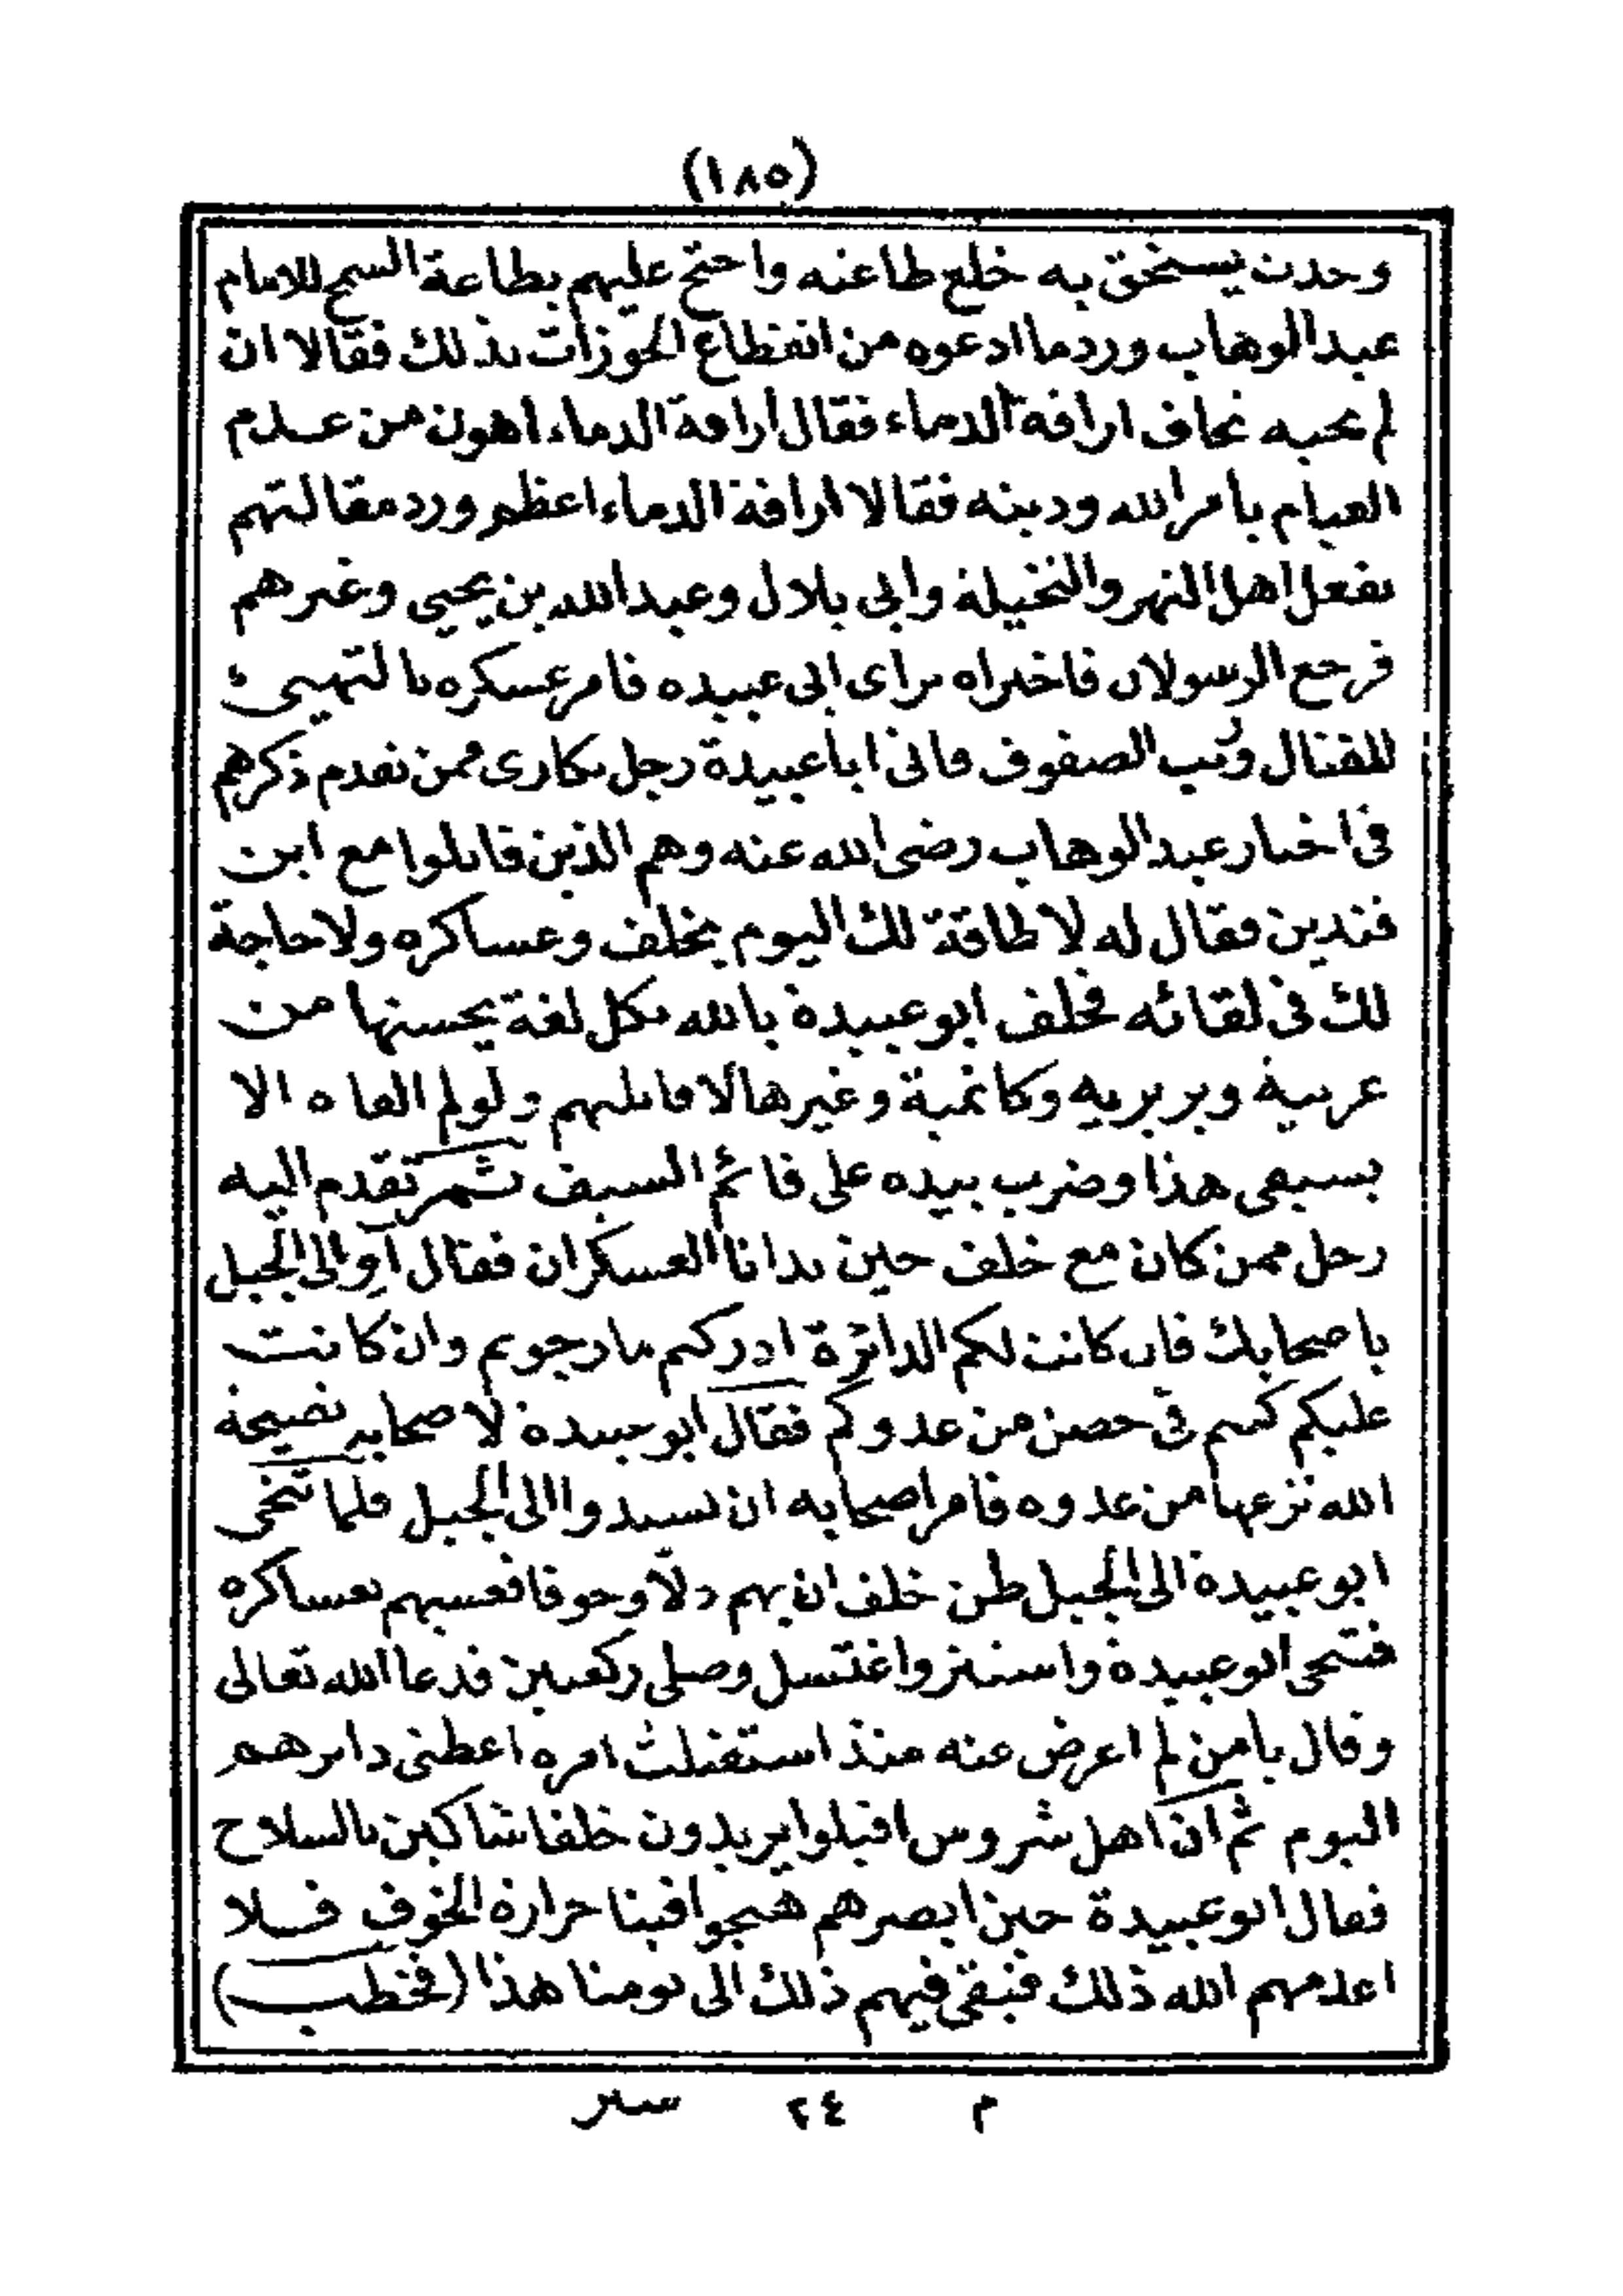 (١٨٥)
وحدث يستحق به خلع طاعته واحتج عليهم بطاعة السمح للامام
عبد الوهاب ورد ما ادعوه من انقطاع الحوزات بذلك فقالا ان
لم تجبه نخاف اراقة الدماء فقال اراقة الدماء اهون من عدم
القيام بامر الله ودينه فقالا اراقة الدماء اعظم ورد مقالتهم
بفعل اهل النهر والنخيلة وابى بلال وعبد الله بن يحيى وغيرهم
فرجع الرسولان فاخبراه براى ابى عبيده فامر عسكره بالتهيئ
للقتال ورتب الصفوف فاتى ابا عبيدة رجل تكارى ممن تقدم ذكرهم
فى اخبار عبد الوهاب رضى الله عنه وهم الذين قاتلوا مع ابن
فندين فقال له لا طاقة لك اليوم بخلف وعساكره ولا حاجة
لك فى لقائه فحلف ابو عبيدة بالله بكل لغة يحسنها من
عربية وبربريه وكانمية وغيرها لاقاتلهم ولو لم القاه الا
بسيفى هذا وضرب بيده على قائم السيف ثم تقدم اليه
رجل ممن كان مع خلف حين تدانا العسكران فقال آوِ الى الجبل
باصحابك فان كانت لكم الدائرة ادركتم ما رجوتم وان كانت
عليكم كنتم فى حصن من عدوكم فقال ابو عبيدة لاصحابه نصيحة
الله نزعها من عدوه فامر اصحابه ان يسندوا الى الجبل فلما تنحى
ابو عبيدة الى الجبل ظن خلف ان بهم ذلاّ وخوفا فغشيهم بعساكره
فتنحى ابو عبيدة واستتر واغتسل وصلى ركعتين فدعا الله تعالى
وقال يا من لم اعرض عنه منذ استقبلت امره اعطنى دابرهم
اليوم ثم ان اهل شروس اقبلوا يريدون خلفا شاكين بالسلاح
فقال ابو عبيدة حين ابصرهم هيجوا فينا حرارة الخوف فلا
اعدمهم الله ذلك فبقى فيهم ذلك الى يومنا هذا (فخطب)
م ٢٤ سير